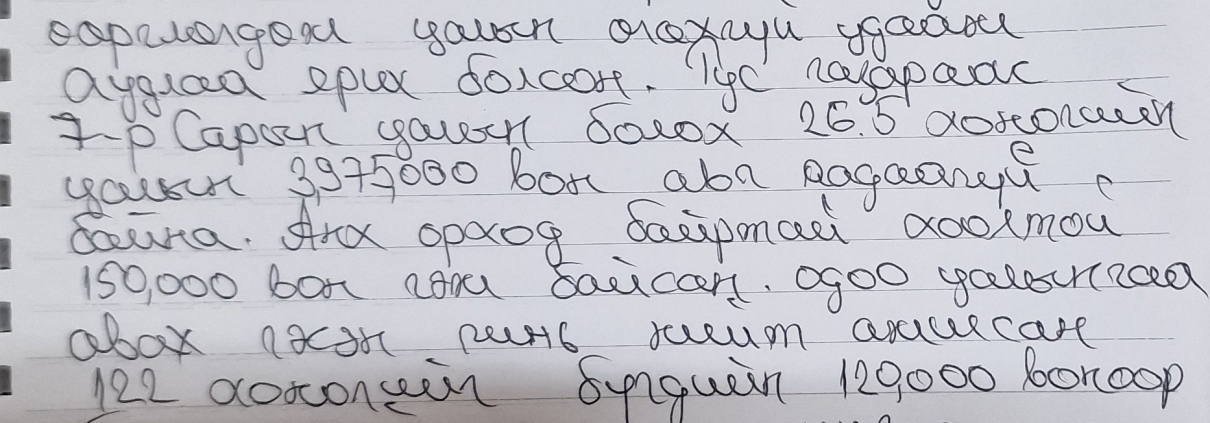 ээрчлөгдөж цалын олохгүй удааж
ажлаа өрих болсон. Тус газараас
7-р Сарын цалын болох 26.5 хоногийн
цалын 3,975,000 вон авч чадаагүй
байна. Анх орход байртай хоолтой
150,000 вон гэж байсан. одоо цалынгаа
авах гэсэн чинь нийт ажилсан
122 хоногийн бүгдийн 120,000 воноор